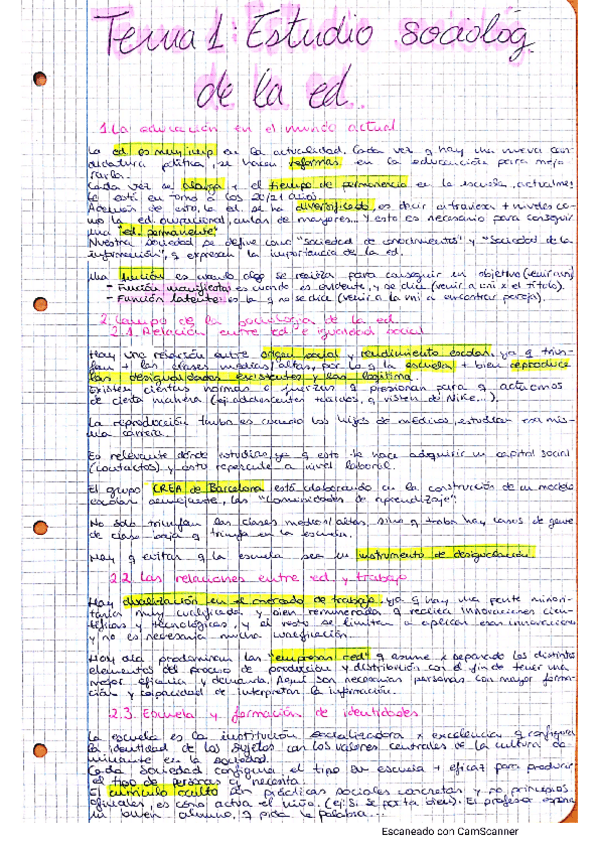 Tema 1: Estudio sociológ.
de la ed.
1. La educación en el mundo actual
La ed es muy imp en la actualidad. Cada vez q hay una nueva can-
didatura política, se hacen reformas en la educación para mejo-
rarla.
Cada vez se alarga + el tiempo de permanencia en la escuela, actualme
te está en torno a los 20/21 años.
Además de esto, la ed se ha diversificado, es decir + niveles co-
mo la ed. aulas de mayores... Y esto es necesario para conseguir
una "ed. permanente"
Nuestra sociedad se define como "sociedad de conocimientos" y "Sociedad de la
información", q expresan la importancia de la ed.
Una función es cuando algo se realiza para conseguir un objetivo (venir uni)
- Función manifiesta es cuando es evidente, y se dice (venir a uni x el título).
- Función latente es la q no se dice (venir a la uni a encontrar pareja).
2. Campo de la sociología de la ed
2.1. Relación entre ed e igualdad social
Hay una relación entre origen social y rendimiento escolar, ya q triun-
fan + las clases medias/altas, por lo q la escuela + bien reproduce
las desigualdades existentes y las legitima.
Existen ciertas normas y fuerzas q presionan para q actuemos
de cierta manera (ej: adolescentes q visten de Nike...).
La reproducción es cuando los hijos de médicos, estudian esa mis-
ma carrera.
Es relevante dónde estudias, ya q esto te hace adquirir un capital social
(contactos) y esto repercute a nivel laboral.
El grupo CREA de Barcelona está elaborando en la construcción de un modelo
escolar las "Comunidades de Aprendizaje".
No solo triunfan las clases medias/altas, sino q hay casos de gente
de clase baja q triunfa en la escuela.
Hay q evitar q la escuela sea un instrumento de desigualación
2.2 Las relaciones entre ed y trabajo
Hay dualización en el mercado de trabajo, ya q hay una parte minori-
taria muy cualificada y bien remunerada q realiza innovaciones cien-
tíficas y tecnológicas, y el resto se limitan a aplicar esas innovación
y no es necesaria mucha cualificación.
Hoy día predominan las "empresas red" q asume x separado los distintos
elementos del proceso de producción y distribución con el fin de tener una
mejor eficacia y demanda. Aquí son necesarias personas con mayor forma-
ción y capacidad de interpretar la información.
2.3. Escuela y formación de identidades
La escuela es la institución socializadora x excelencia q configura
la identidad de los sujetos con los valores centrales de la cultura do-
minante en la sociedad.
Cada sociedad configura el tipo de escuela + eficaz para producir
el tipo de personas q necesita.
El currículo oculto son prácticas sociales concretas y no principios
oficiales, es cómo actúa el niño, (ej: si se porta bien). El profesor espera
un buen alumno, y pide la palabra...
Escaneado con CamScanner